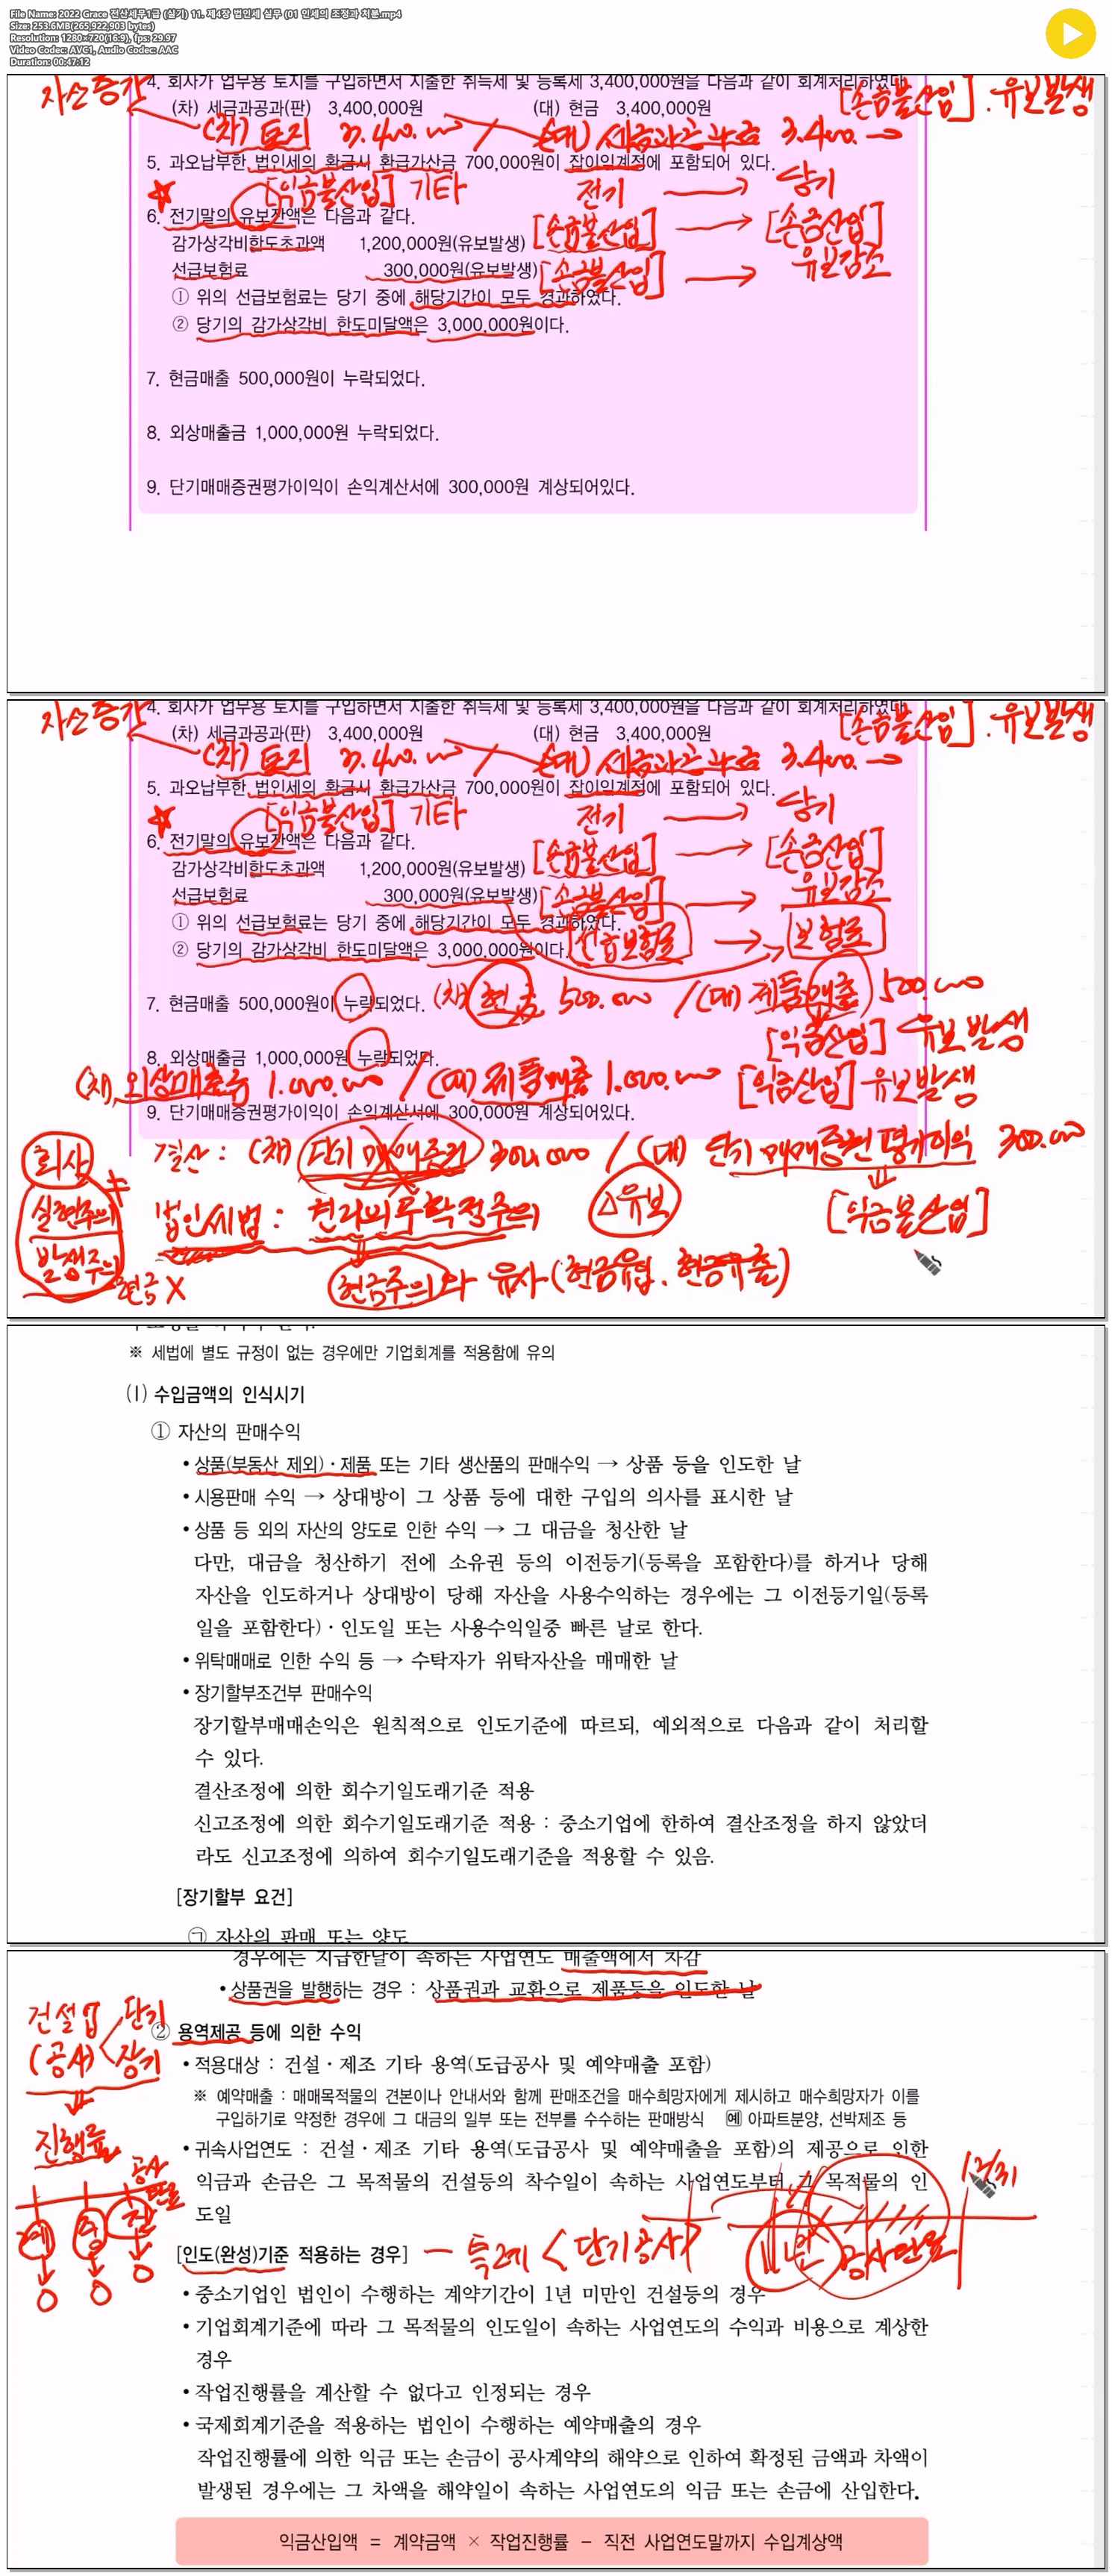 File Name: 2022 Grace 전산세무1급 (실기) 11. 제4장 법인세 실무 (01 인세의 조정과 처분.mp4
Size: 253.6MB(265,922,903 bytes)
Resolution: 1280×720(16:9), fps: 29.97
Video Codec: AVC1, Audio Codec: AAC
Duration: 00:47:12
4. 회사가 업무용 토지를 구입하면서 지출한 취득세 및 등록세 3,400,000원을 다음과 같이 회계처리하였다.
자산증가
[손금불산입]. 유보발생
(차) 세금과공과(판) 3,400,000원 (대) 현금 3,400,000원
(차) 토지 3.400.000 / (대) 세금과공과금 3.400.
5. 과오납부한 법인세의 환급시 환급가산금 700,000원이 잡이익계정에 포함되어 있다.
[익금불산입] 기타 전기 → 당기
6. 전기말의 유보잔액은 다음과 같다.
감가상각비한도초과액 1,200,000원(유보발생) [손금불산입] → [손금산입]
선급보험료 300,000원(유보발생) [손금불산입] → 유보감소
① 위의 선급보험료는 당기 중에 해당기간이 모두 경과하였다.
② 당기의 감가상각비 한도미달액은 3,000,000원이다.
7. 현금매출 500,000원이 누락되었다.
8. 외상매출금 1,000,000원 누락되었다.
9. 단기매매증권평가이익이 손익계산서에 300,000원 계상되어있다.
4. 회사가 업무용 토지를 구입하면서 지출한 취득세 및 등록세 3,400,000원을 다음과 같이 회계처리하였다.
자산증가
[손금불산입]. 유보발생
(차) 세금과공과(판) 3,400,000원 (대) 현금 3,400,000원
(차) 토지 3.400.000 / (대) 세금과공과금 3.400.
5. 과오납부한 법인세의 환급시 환급가산금 700,000원이 잡이익계정에 포함되어 있다.
[익금불산입] 기타 전기 → 당기
6. 전기말의 유보잔액은 다음과 같다.
감가상각비한도초과액 1,200,000원(유보발생) [손금불산입] → [손금산입]
선급보험료 300,000원(유보발생) [손금불산입] → 유보감소
① 위의 선급보험료는 당기 중에 해당기간이 모두 경과하였다.
② 당기의 감가상각비 한도미달액은 3,000,000원이다. 선급보험료 → 보험료
7. 현금매출 500,000원이 누락되었다. (차) 현금 500.000 / (대) 제품매출 500.000
[익금산입] 유보발생
8. 외상매출금 1,000,000원 누락되었다.
(차) 외상매출금 1.000.000 / (대) 제품매출 1.000.000 [익금산입] 유보발생
9. 단기매매증권평가이익이 손익계산서에 300,000원 계상되어있다.
회사 결산 : (차) 단기매매증권 300.000 / (대) 단기매매증권평가이익 300.000
실현주의 ≠ 법인세법 : 권리의무확정주의 △유보 [익금불산입]
발생주의
현금 X 현금주의와 유사(현금유입. 현금유출)
※ 세법에 별도 규정이 없는 경우에만 기업회계를 적용함에 유의
(1) 수입금액의 인식시기
① 자산의 판매수익
• 상품(부동산 제외)·제품 또는 기타 생산품의 판매수익 → 상품 등을 인도한 날
• 시용판매 수익 → 상대방이 그 상품 등에 대한 구입의 의사를 표시한 날
• 상품 등 외의 자산의 양도로 인한 수익 → 그 대금을 청산한 날
다만, 대금을 청산하기 전에 소유권 등의 이전등기(등록을 포함한다)를 하거나 당해
자산을 인도하거나 상대방이 당해 자산을 사용수익하는 경우에는 그 이전등기일(등록
일을 포함한다)·인도일 또는 사용수익일중 빠른 날로 한다.
• 위탁매매로 인한 수익 등 → 수탁자가 위탁자산을 매매한 날
• 장기할부조건부 판매수익
장기할부매매손익은 원칙적으로 인도기준에 따르되, 예외적으로 다음과 같이 처리할
수 있다.
결산조정에 의한 회수기일도래기준 적용
신고조정에 의한 회수기일도래기준 적용 : 중소기업에 한하여 결산조정을 하지 않았더
라도 신고조정에 의하여 회수기일도래기준을 적용할 수 있음.
[장기할부 요건]
㉠ 자산의 판매 또는 양도
경우에는 지급한날이 속하는 사업연도 매출액에서 차감
• 상품권을 발행하는 경우 : 상품권과 교환으로 제품등을 인도한 날
건설업 단기
(공사) 장기
진행률
공사
완료
② 용역제공 등에 의한 수익
• 적용대상 : 건설·제조 기타 용역(도급공사 및 예약매출 포함)
※ 예약매출 : 매매목적물의 견본이나 안내서와 함께 판매조건을 매수희망자에게 제시하고 매수희망자가 이를
구입하기로 약정한 경우에 그 대금의 일부 또는 전부를 수수하는 판매방식 예 아파트분양, 선박제조 등
• 귀속사업연도 : 건설·제조 기타 용역(도급공사 및 예약매출을 포함)의 제공으로 인한
익금과 손금은 그 목적물의 건설등의 착수일이 속하는 사업연도부터 그 목적물의 인
도일
12/31
[인도(완성)기준 적용하는 경우] - 특례 <단기공사> 1년 공사완료
• 중소기업인 법인이 수행하는 계약기간이 1년 미만인 건설등의 경우
• 기업회계기준에 따라 그 목적물의 인도일이 속하는 사업연도의 수익과 비용으로 계상한
경우
• 작업진행률을 계산할 수 없다고 인정되는 경우
• 국제회계기준을 적용하는 법인이 수행하는 예약매출의 경우
작업진행률에 의한 익금 또는 손금이 공사계약의 해약으로 인하여 확정된 금액과 차액이
발생된 경우에는 그 차액을 해약일이 속하는 사업연도의 익금 또는 손금에 산입한다.
익금산입액 = 계약금액 × 작업진행률 - 직전 사업연도말까지 수입계상액